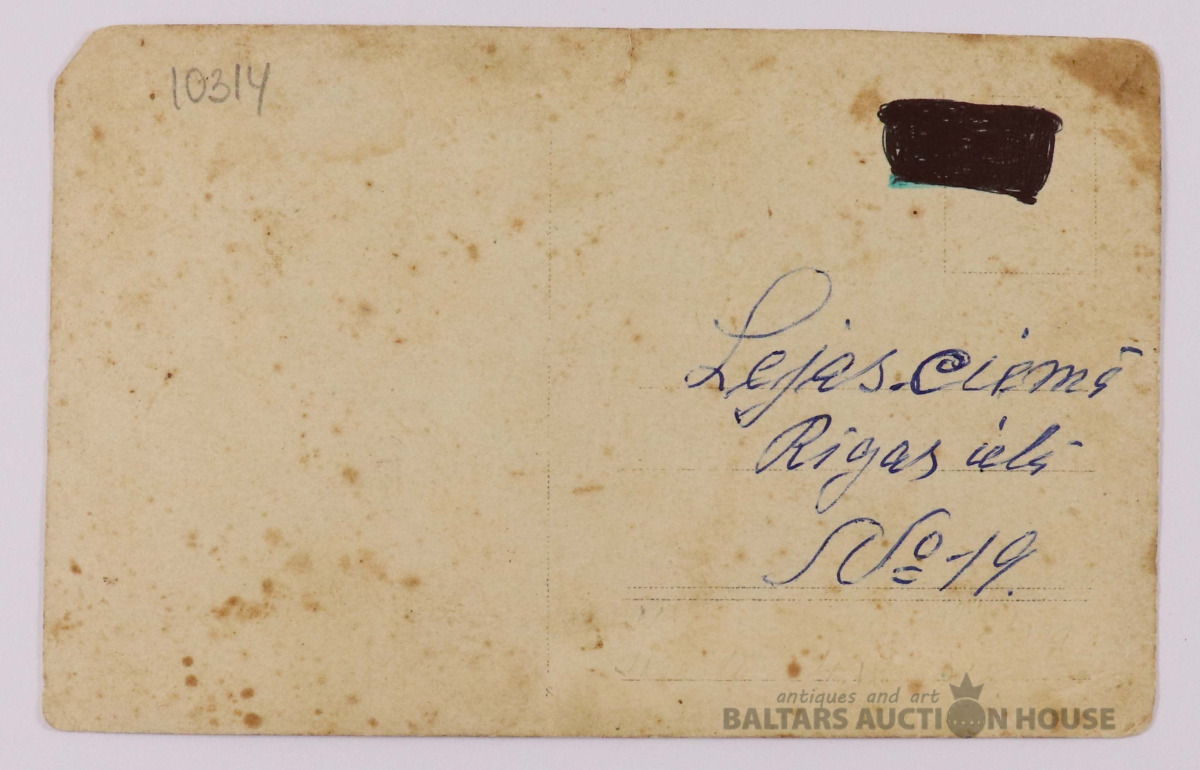 10314
Lejas-ciemā
Rīgas ielā
No 19.
antiques and art
BALTARS AUCTION HOUSE